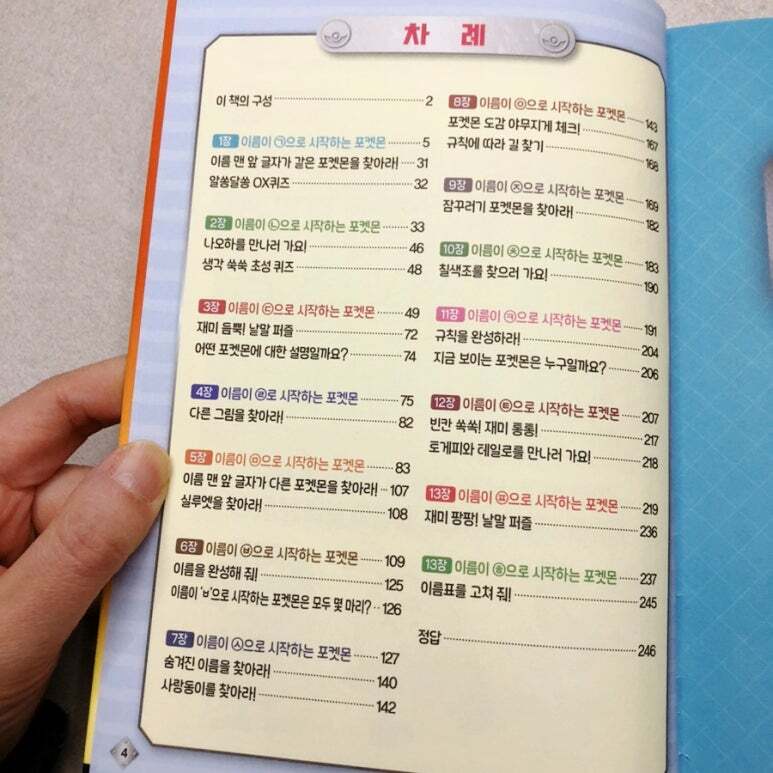 차 례
이 책의 구성 2
1장 이름이 ㉠으로 시작하는 포켓몬 5
이름 맨 앞 글자가 같은 포켓몬을 찾아라! 31
알쏭달쏭 OX퀴즈 32
2장 이름이 ㉡으로 시작하는 포켓몬 33
나오하를 만나러 가요! 46
생각 쑥쑥 초성 퀴즈 48
3장 이름이 ㉢으로 시작하는 포켓몬 49
재미 듬뿍! 낱말 퍼즐 72
어떤 포켓몬에 대한 설명일까요? 74
4장 이름이 ㉣로 시작하는 포켓몬 75
다른 그림을 찾아라! 82
5장 이름이 ㉤으로 시작하는 포켓몬 83
이름 맨 앞 글자가 다른 포켓몬을 찾아라! 107
실루엣을 찾아라! 108
6장 이름이 ㉥으로 시작하는 포켓몬 109
이름을 완성해 줘! 125
이름이 'ㅂ'으로 시작하는 포켓몬은 모두 몇 마리? 126
7장 이름이 ㉦으로 시작하는 포켓몬 127
숨겨진 이름을 찾아라! 140
사랑동이를 찾아라! 142
8장 이름이 ㉧으로 시작하는 포켓몬 143
포켓몬 도감 야무지게 체크! 167
규칙에 따라 길 찾기 168
9장 이름이 ㉨으로 시작하는 포켓몬 169
잠꾸러기 포켓몬을 찾아라! 182
10장 이름이 ㉩으로 시작하는 포켓몬 183
칠색조를 찾으러 가요! 190
11장 이름이 ㉪으로 시작하는 포켓몬 191
규칙을 완성하라! 204
지금 보이는 포켓몬은 누구일까요? 206
12장 이름이 ㉫으로 시작하는 포켓몬 207
빈칸 쏙쏙! 재미 통통! 217
토게피와 테일로를 만나러 가요! 218
13장 이름이 ㉬으로 시작하는 포켓몬 219
재미 팡팡! 낱말 퍼즐 236
13장 이름이 ㉭으로 시작하는 포켓몬 237
이름표를 고쳐 줘! 245
정답 246
4